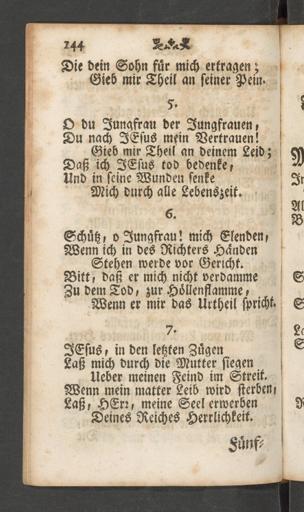 144
Die dein Sohn für mich ertragen;
Gieb mir Theil an seiner Pein.
5.
O du Jungfrau der Jungfrauen,
Du nach JEsus mein Vertrauen!
Gieb mir Theil an deinem Leid;
Daß ich JEsus tod bedenke,
Und in seine Wunden senke
Mich durch alle Lebenszeit.
6.
Schütz, o Jungfrau! mich Elenden,
Wenn ich in des Richters Händen
Stehen werde vor Gericht.
Bitt, daß er mich nicht verdamme
Zu dem Tod, zur Höllenflamme,
Wenn er mir das Urtheil spricht.
7.
JEsus, in den letzten Zügen
Laß mich durch die Mutter siegen
Ueber meinen Feind im Streit.
Wenn mein matter Leib wird sterben,
Laß, HErr, meine Seel erwerben
Deines Reiches Herrlichkeit.
Fünf-